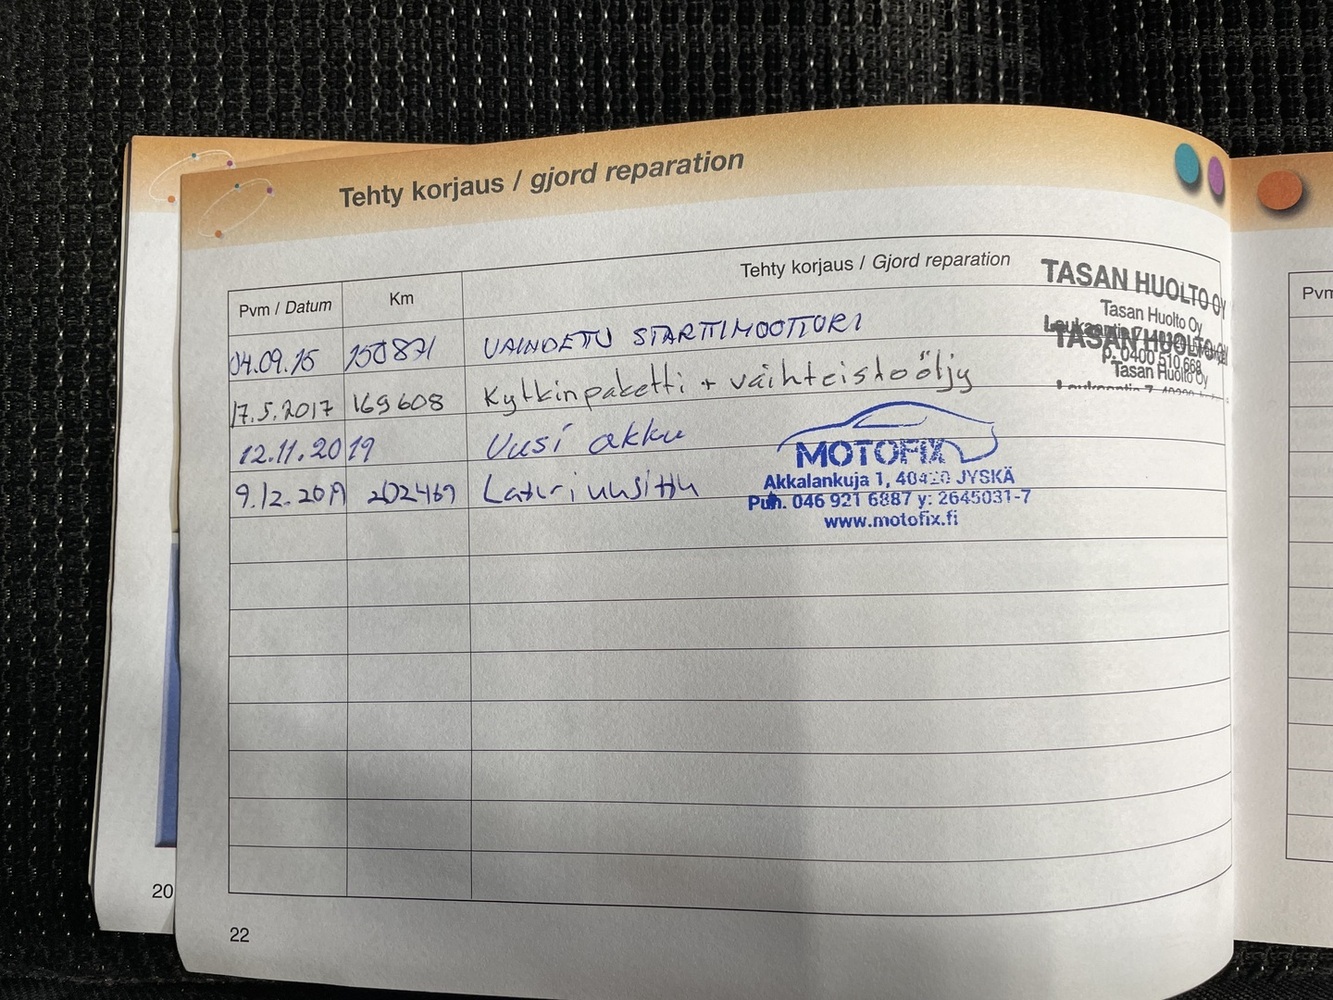 Tehty korjaus / gjord reparation
Pvm / Datum
Km
Tehty korjaus / Gjord reparation
TASAN HUOLTO OY
Tasan Huolto Oy
04.09.15 150871 VAIHDETTU STARTTIMOOTTORI
TASAN HUOLTO
p. 0400 510 668
Tasan Huolto Oy
17.5.2017 169608 Kytkinpaketti + vaihteistoöljy
12.11.2019 Uusi akku
9.12.2019 202469 Laturi uusittu
MOTOFIX
Akkalankuja 1, 40420 JYSKÄ
Puh. 046 921 6887 y: 2645031-7
www.motofix.fi
20
22
Pvm